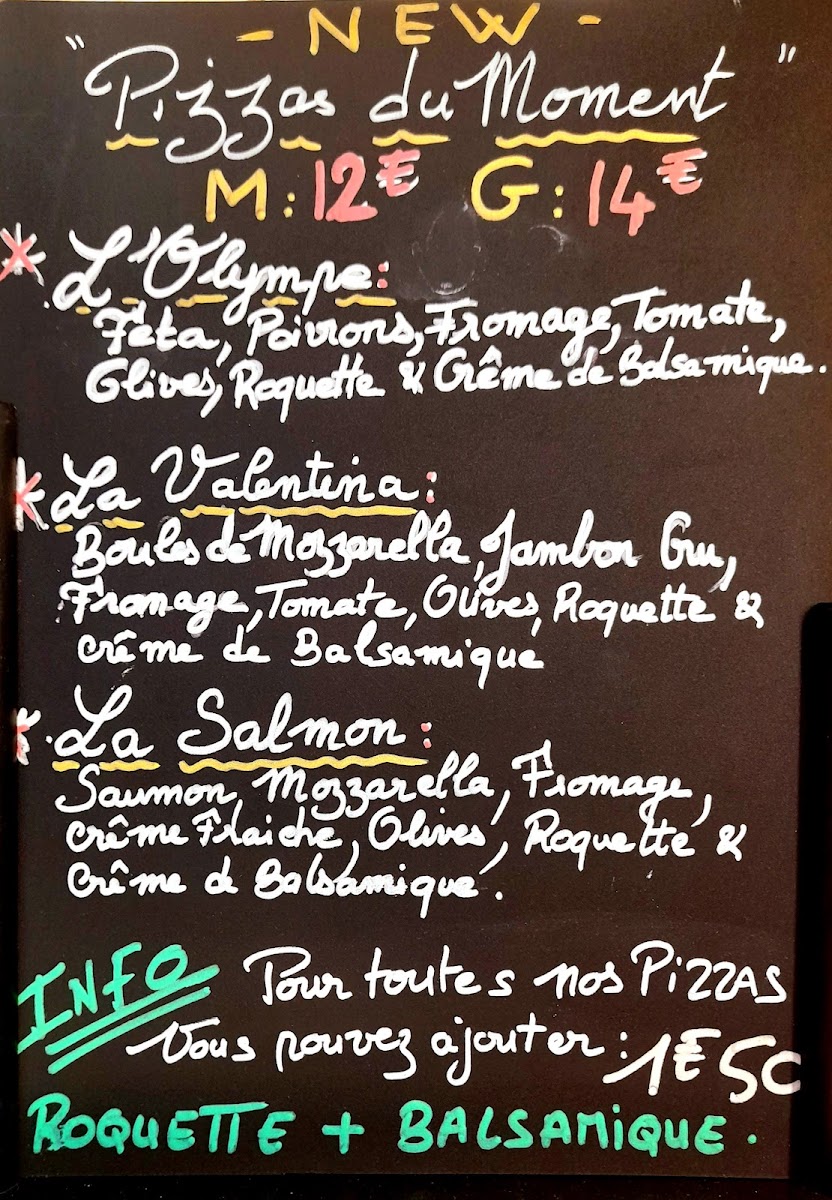 - NEW -
"Pizzas du Moment"
M: 12€ G: 14€
* L'Olympe:
Fêta, Poivrons, Fromage, Tomate,
Olives, Roquette & Crême de Balsamique.
* La Valentina:
Boules de Mozzarella, Jambon Cru,
Fromage, Tomate, Olives, Roquette &
crême de Balsamique
* La Salmon:
Saumon, Mozzarella, Fromage,
crême Fraiche, Olives, Roquette &
Crême d Balsamique.
INFO Pour toutes nos PiZZAS
Vous pouvez ajouter: 1€50
ROQUETTE + BALSAMiQUE.